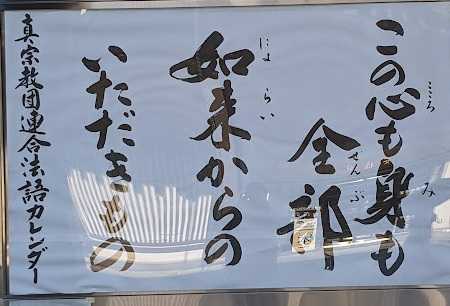 この心も身も
こころ み
全部
ぜんぶ
如来からの
にょらい
いただきもの
真宗教団連合法語カレンダー